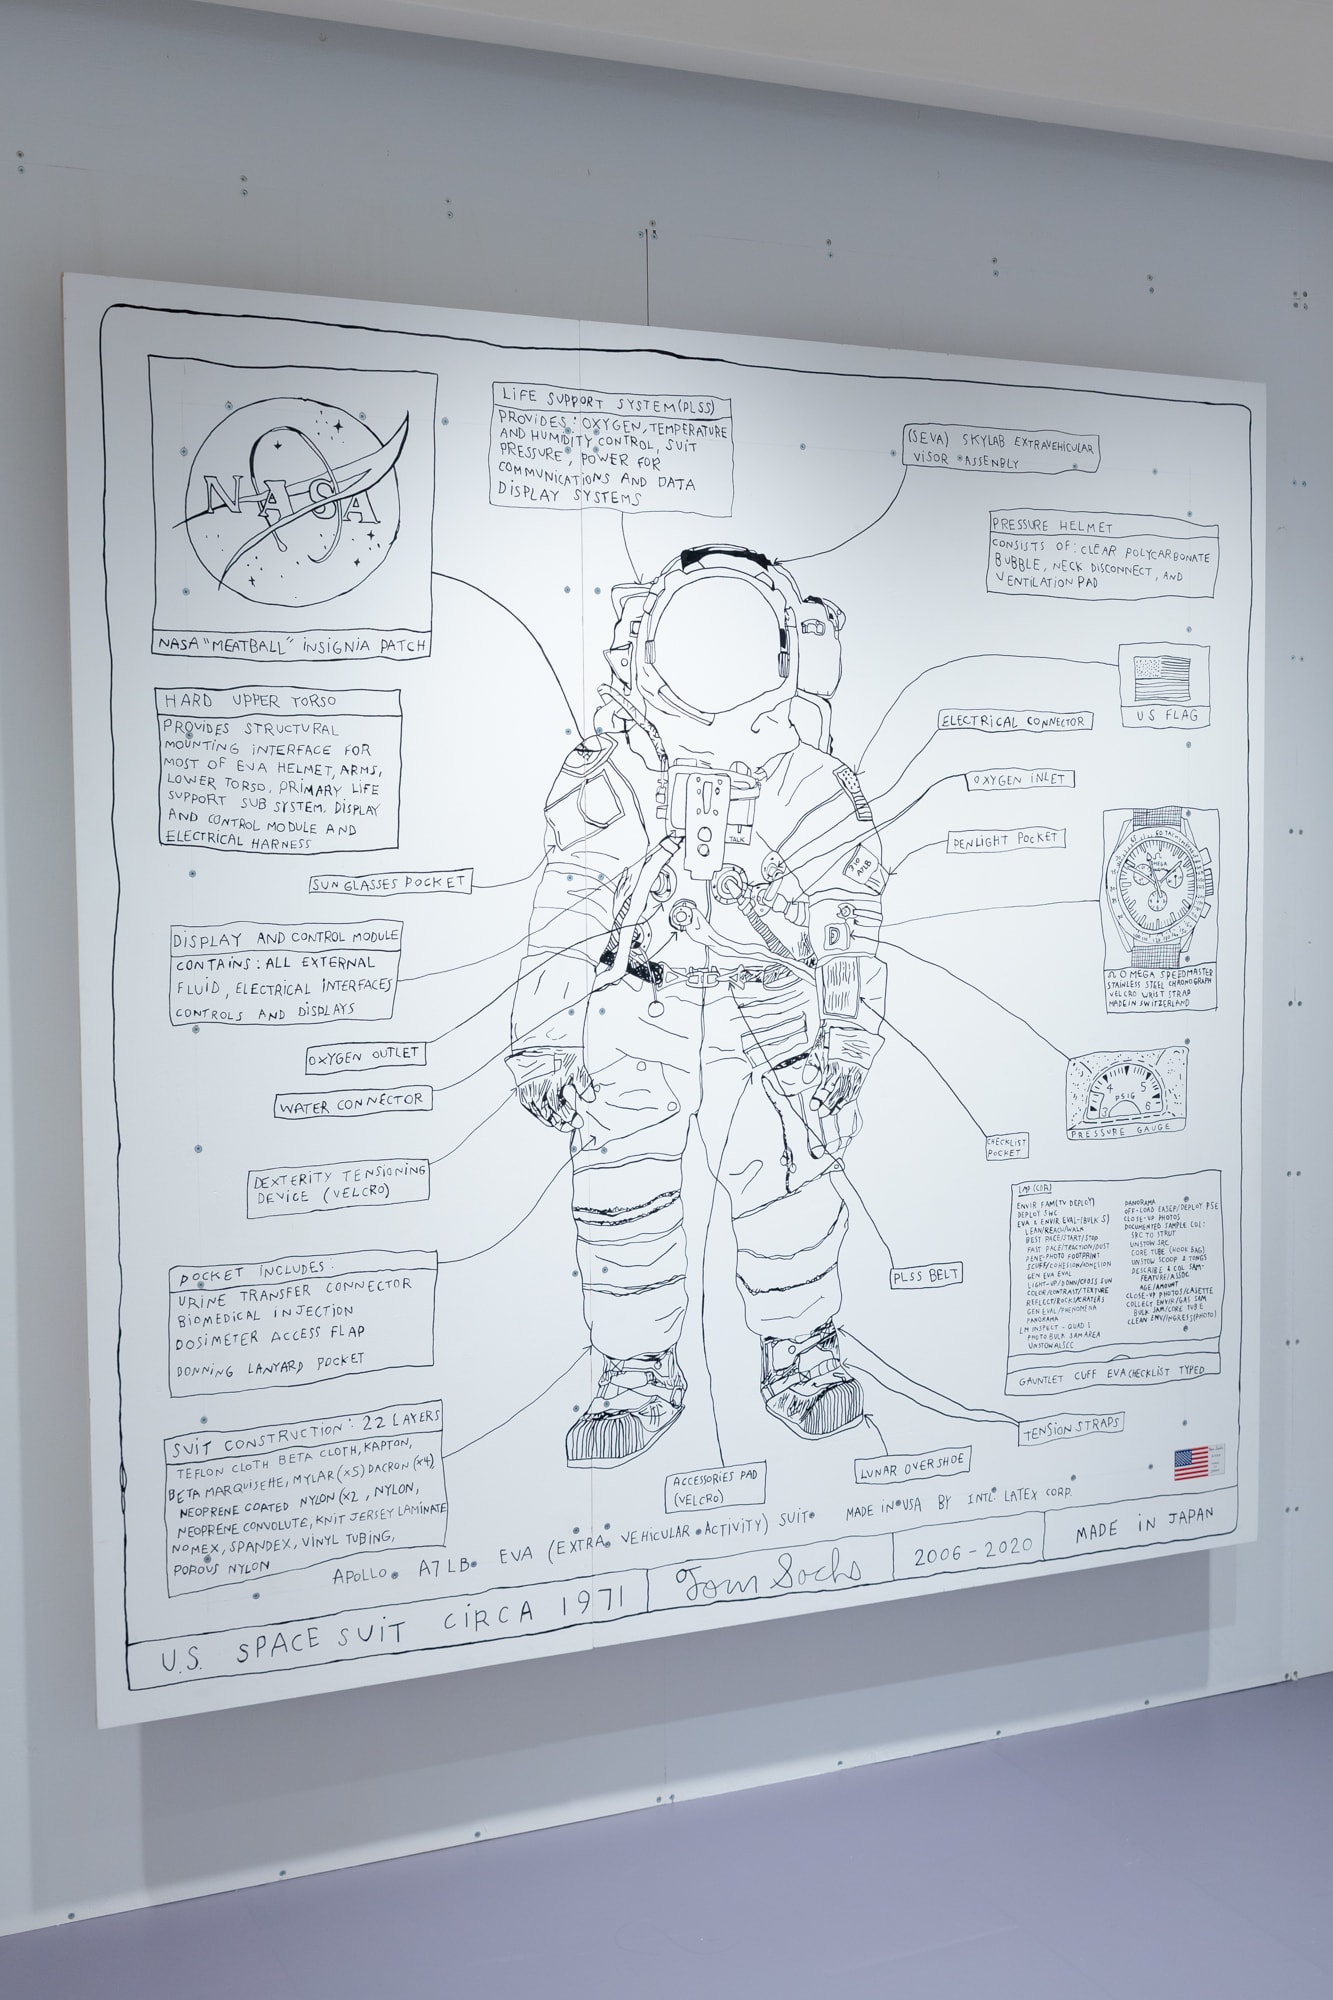 NASA
NASA "MEATBALL" INSIGNIA PATCH
LIFE SUPPORT SYSTEM (PLSS)
PROVIDES: OXYGEN, TEMPERATURE
AND HUMIDITY CONTROL, SUIT
PRESSURE, POWER FOR
COMMUNICATIONS AND DATA
DISPLAY SYSTEMS
(SEVA) SKYLAB EXTRAVEHICULAR
VISOR ASSEMBLY
PRESSURE HELMET
CONSISTS OF: CLEAR POLYCARBONATE
BUBBLE, NECK DISCONNECT, AND
VENTILATION PAD
US FLAG
HARD UPPER TORSO
PROVIDES STRUCTURAL
MOUNTING INTERFACE FOR
MOST OF EVA HELMET, ARMS,
LOWER TORSO, PRIMARY LIFE
SUPPORT SUB SYSTEM, DISPLAY
AND CONTROL MODULE AND
ELECTRICAL HARNESS
ELECTRICAL CONNECTOR
OXYGEN INLET
PENLIGHT POCKET
TALK
SUNGLASSES POCKET
OMEGA
Ω OMEGA SPEEDMASTER
STAINLESS STEEL CHRONOGRAPH
VELCRO WRIST STRAP
MADE IN SWITZERLAND
DISPLAY AND CONTROL MODULE
CONTAINS: ALL EXTERNAL
FLUID, ELECTRICAL INTERFACES
CONTROLS AND DISPLAYS
OXYGEN OUTLET
WATER CONNECTOR
3 4 5 6
PSIG
PRESSURE GAUGE
CHECKLIST
POCKET
DEXTERITY TENSIONING
DEVICE (VELCRO)
LMP (CDR)
ENVIR FAM (TV DEPLOY)
DEPLOY SWC
EVA & ENVIR EVAL-(BULK S)
LEAN/REACH/WALK
BEST PACE/START/STOP
FAST PACE/TRACTION/DUST
PENE-PHOTO FOOTPRINT
SCUFF/COHESION/ADHESION
GEN EVA EVAL
LIGHT-UP/DOWN/CROSS SUN
COLOR/CONTRAST/TEXTURE
REFLECT/ROCKS/CRATERS
GEN EVAL/PHENOMENA
PANORAMA
LM INSPECT - QUAD 1
PHOTO BULK SAM AREA
PANORAMA
OFF-LOAD EASEP/DEPLOY PSE
CLOSE-UP PHOTOS
DOCUMENTED SAMPLE COL:
SRC TO STRUT
UNSTOW SRC
CORE TUBE (HOOK BAG)
UNSTOW SCOOP & TONGS
DESCRIBE & COL SAM-
FEATURE/ASSOC
AGE/AMOUNT
CLOSE-UP PHOTOS/CASETTE
COLLECT ENVIR/GAS SAM
BULK SAM/CORE TUBE
CLEAN EMU/INGRESS (PHOTO)
GAUNTLET CUFF EVA CHECKLIST TYPED
PLSS BELT
POCKET INCLUDES:
URINE TRANSFER CONNECTOR
BIOMEDICAL INJECTION
DOSIMETER ACCESS FLAP
DONNING LANYARD POCKET
SUIT CONSTRUCTION: 22 LAYERS
TEFLON CLOTH BETA CLOTH, KAPTON,
BETA MARQUISETTE, MYLAR (x5) DACRON (x4)
NEOPRENE COATED NYLON (x2, NYLON,
NEOPRENE CONVOLUTE, KNIT JERSEY LAMINATE
NOMEX, SPANDEX, VINYL TUBING,
POROUS NYLON
TENSION STRAPS
LUNAR OVERSHOE
ACCESSORIES PAD
(VELCRO)
APOLLO A7LB EVA (EXTRA VEHICULAR ACTIVITY) SUIT MADE IN USA BY INTL. LATEX CORP.
U.S. SPACE SUIT CIRCA 1971
Tom Sachs
2006-2020
MADE IN JAPAN